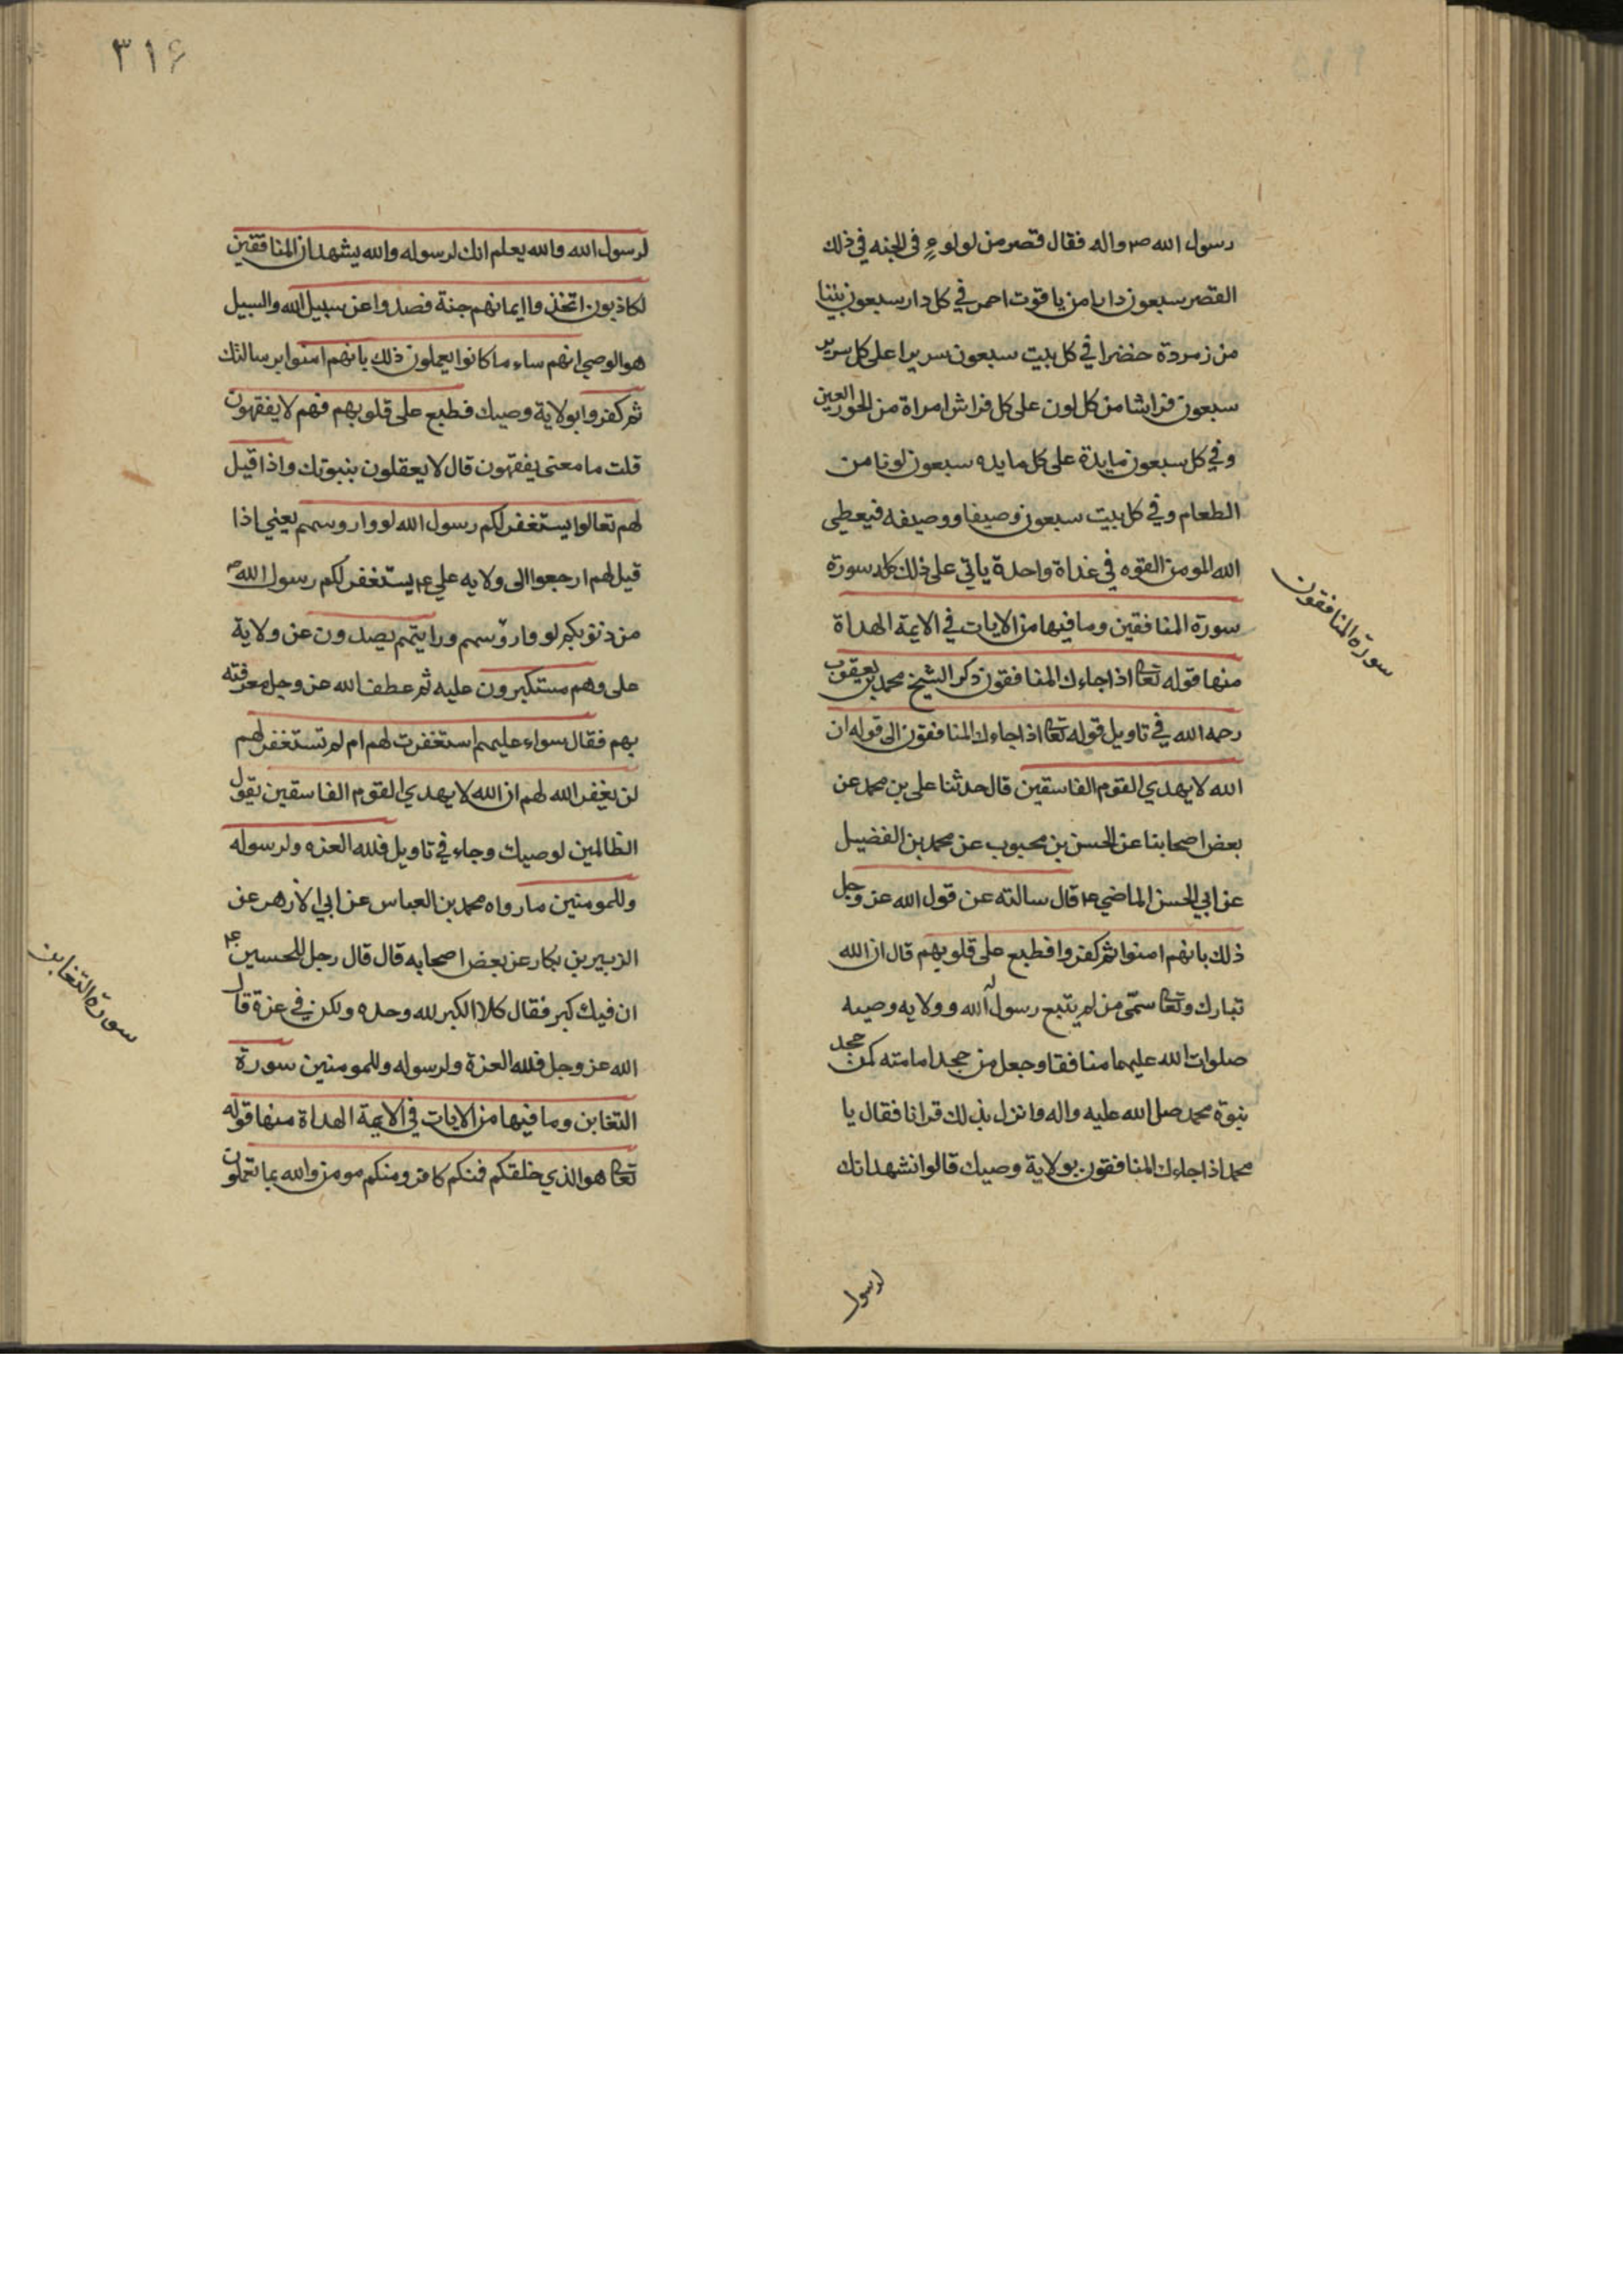 رسول الله ص واله فقال قصر من لولوء في الجنه في ذلك
القصر سبعون دارا من ياقوت احمر في كل دار سبعون بيتا
من زمردة خضرا في كل بيت سبعون سريرا على كل سرير
سبعون فراشا من كل لون على كل فراش امراة من الحور العين
وفي كل سبعون مايدة على كل مايده سبعون لونا من
الطعام وفي كل بيت سبعون وصيفا ووصيفه فيعطى
الله المومن القوه في غداة واحدة ياتي على ذلك كله سورة
سورة المنافقين وما فيها من الايات في الايمة الهداة
سورة المنافقون
منها قوله تعا اذا جاءك المنافقون ذكر الشيخ محمد بن يعقوب
رحمه الله في تاويل قوله تعا اذا جاءك المنافقون الى قوله ان
الله لا يهدي القوم الفاسقين قال حدثنا علي بن محمد عن
بعض اصحابنا عن الحسن بن محبوب عن محمد بن الفضيل
عن ابي الحسن الماضي ع قال سالته عن قول الله عز وجل
ذلك بانهم امنوا ثم كفروا فطبع على قلوبهم قال ان الله
تبارك وتعا سمّى من لم يتبع رسول الله وولايه وصيه
صلوات الله عليهما منافقا وجعل من جحد امامته كمن جحد
نبوة محمد صلى الله عليه واله وانزل بذلك قرانا فقال يا
محمد اذا جاءك المنافقون بولاية وصيك قالوا نشهد انك
لرسول
٣١۶
لرسول الله والله يعلم انك لرسوله والله يشهد ان المنافقين
لكاذبون اتخذوا ايمانهم جنة فصدوا عن سبيل الله والسبيل
هو الوصي انهم ساء ما كانوا يعملون ذلك بانهم امنوا برسالتك
ثم كفروا بولاية وصيك فطبع على قلوبهم فهم لا يفقهون
قلت ما معنى يفقهون قال لا يعقلون بنبوتك واذا قيل
لهم تعالوا يستغفر لكم رسول الله لووا روسهم يعني اذا
قيل لهم ارجعوا الى ولايه علي ع يستغفر لكم رسول الله ص
من ذنوبكم لووا روسهم ورايتهم يصدون عن ولاية
على وهم مستكبرون عليه ثم عطف الله عز وجل معرفته
بهم فقال سواء عليهم استغفرت لهم ام لم تستغفر لهم
لن يغفر الله لهم ان الله لا يهدي القوم الفاسقين يقول
الظالمين لوصيك وجاء في تاويل فلله العزه ولرسوله
وللمومنين ما رواه محمد بن العباس عن ابي الازهر عن
الزبير بن بكار عن بعض اصحابه قال قال رجل للحسين ع
ان فيك كبر فقال كلا الكبر لله وحده ولكن في عزة قال
الله عز وجل فلله العزة ولرسوله وللمومنين سورة
سورة التغابن
التغابن وما فيها من الايات في الايمة الهداة منها قوله
تعا هو الذي خلقكم فمنكم كافر ومنكم مومن والله بما تعملون